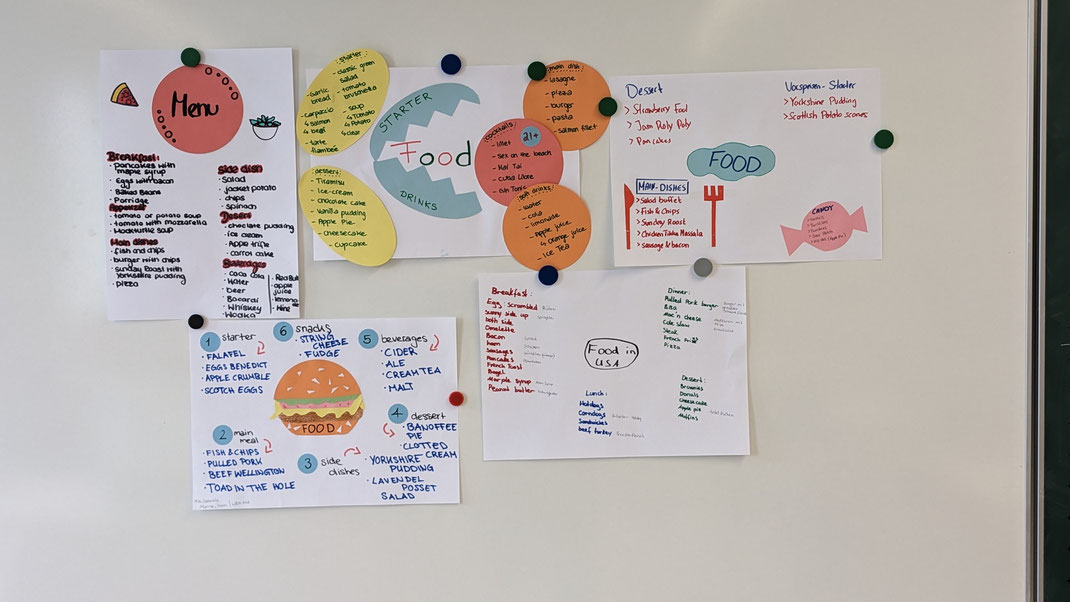 Menu
Breakfast:
· pancakes with
maple syrup
· Eggs with bacon
· Baked Beans
· Porridge
Appetizer
· tomato or potato soup
· tomato with mozzarella
· Mockturtle soup
Main dishes
· fish and chips
· burger with chips
· sunday Roast with
Yorkshire pudding
· pizza
side dish
· Salad
· jacket potato
· chips
· spinach
· chocolate pudding
· ice cream
· Apple trifle
· carrot cake
Beverages
· coca cola
· Water
· beer
· Bacardi
· Whiskey
· Wodka
· Red Bull
· apple
juice
· Wine
starter:
- classic green
salad
- tomato
bruschetta
- Garlic
bread
- carpaccio
↳ salmon
↳ beef
- tarte
flambee
- soup
↳ tomato
↳ potato
↳ clear
dessert:
- Tiramisu
- Ice-cream
- chocolate cake
- Vanilla pudding
- Apple Pie
- cheesecake
- cupcake
STARTER
Food
DRINKS
main dish:
- lasagne
- pizza
- burger
- pasta
- salmon fillet
cocktails:
21+
- Lillet
- Sex on the beach
- Mai Tai
- Cuba Libre
- Gin Tonic
soft drinks:
- water
- cola
- limonade
- Apple juice
↳ Orange juice
- Ice Tea
Dessert
> Strawberry Fool
> Jam Roly Poly
> Pancakes
Vorspeisen - Starter
> Yorkshire Pudding
> Scottish Potato scones
FOOD
MAIN-DISHES
> Salad buffet
> Fish & Chips
> Sunday Roast
> Chicken Tikka Massala
> Sausage & bacon
CANDY
1 starter
· FALAFEL
· EGGS BENEDICT
· APPLE CRUMBLE
· SCOTCH EGGS
6 snacks
· STRING
CHEESE
· FUDGE
5 beverages
· CIDER
· ALE
· CREAM TEA
· MALT
FOOD
2 main
meal
· FISH & CHIPS
· PULLED PORK
· BEEF WELLINGTON
· TOAD IN THE HOLE
3 side
dishes
· YORKSHIRE
PUDDING
· LAVENDEL
POSSET
SALAD
4 dessert
· BANOFFEE
PIE
· CLOTTED
CREAM
Breakfast:
Egg: scrambled
Sunny side up
both side
Omelette
Bacon
ham
Sausages
Pancakes
French Toast
Bagel
Marple syrup
Peanut butter
Food in
USA
Lunch:
Hotdogs
Corndogs
Sandwiches
beef turkey
Dinner:
Pulled Pork burger
BBQ
Mac'n cheese
Cole slaw
Steak
French Fries
Pizza
Dessert:
Brownies
Donuts
Cheesecake
Apple pie
Muffins